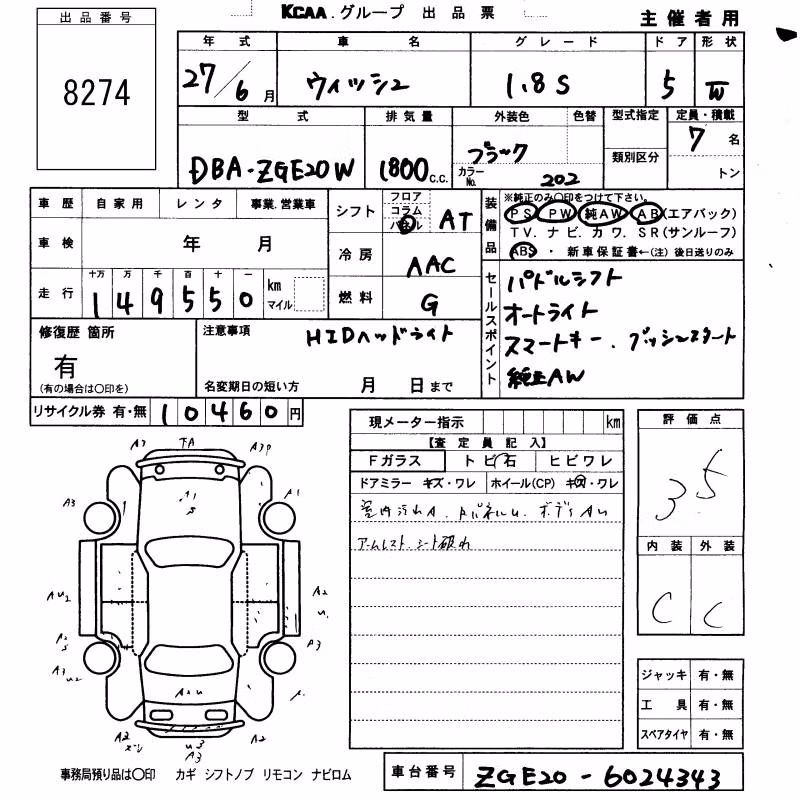 KCAA.グループ 出品票
主催者用
出品番号
8274
年式 車名 グレード ドア 形状
27/6月 ウィッシュ 1.8S 5 W
型式 排気量 外装色 色替 型式指定 定員・積載
DBA-ZGE20W 1800c.c. ブラック カラーNo. 202 類別区分 7名 トン
車歴 自家用 レンタ 事業.営業車
車検 年 月
走行 十万 万 千 百 十 一 km マイル
149550
シフト フロア コラム パネル AT
冷房 AAC
燃料 G
装備品 ※純正のみ〇印をつけて下さい。
PS PW 純AW AB(エアバック)
TV. ナビ. カワ. SR(サンルーフ)
ABS ・ 新車保証書←(注)後日送りのみ
セールスポイント
パドルシフト
オートライト
スマートキー. プッシュスタート
純正AW
修復歴 箇所
有
(有の場合は〇印を)
注意事項 HIDヘッドライト
名変期日の短い方 月 日まで
リサイクル券 有・無 10460円
現メーター指示 km
【査定員記入】
Fガラス トビ石 ヒビワレ
ドアミラー キズ・ワレ ホイール(CP) キズ・ワレ
室内汚れA. RパネルU. ボディAU
アームレスト. シート破れ
評価点
3.5
内装 外装
C C
A3 下A A3P
A3 A1 S A1
AU2 A2 U1
A2 S P3
A3 U2 A2U
A2 U3 A2
A3
ジャッキ 有・無
工具 有・無
スペアタイヤ 有・無
事務局預り品は〇印 カギ シフトノブ リモコン ナビロム
車台番号 ZGE20-6024343